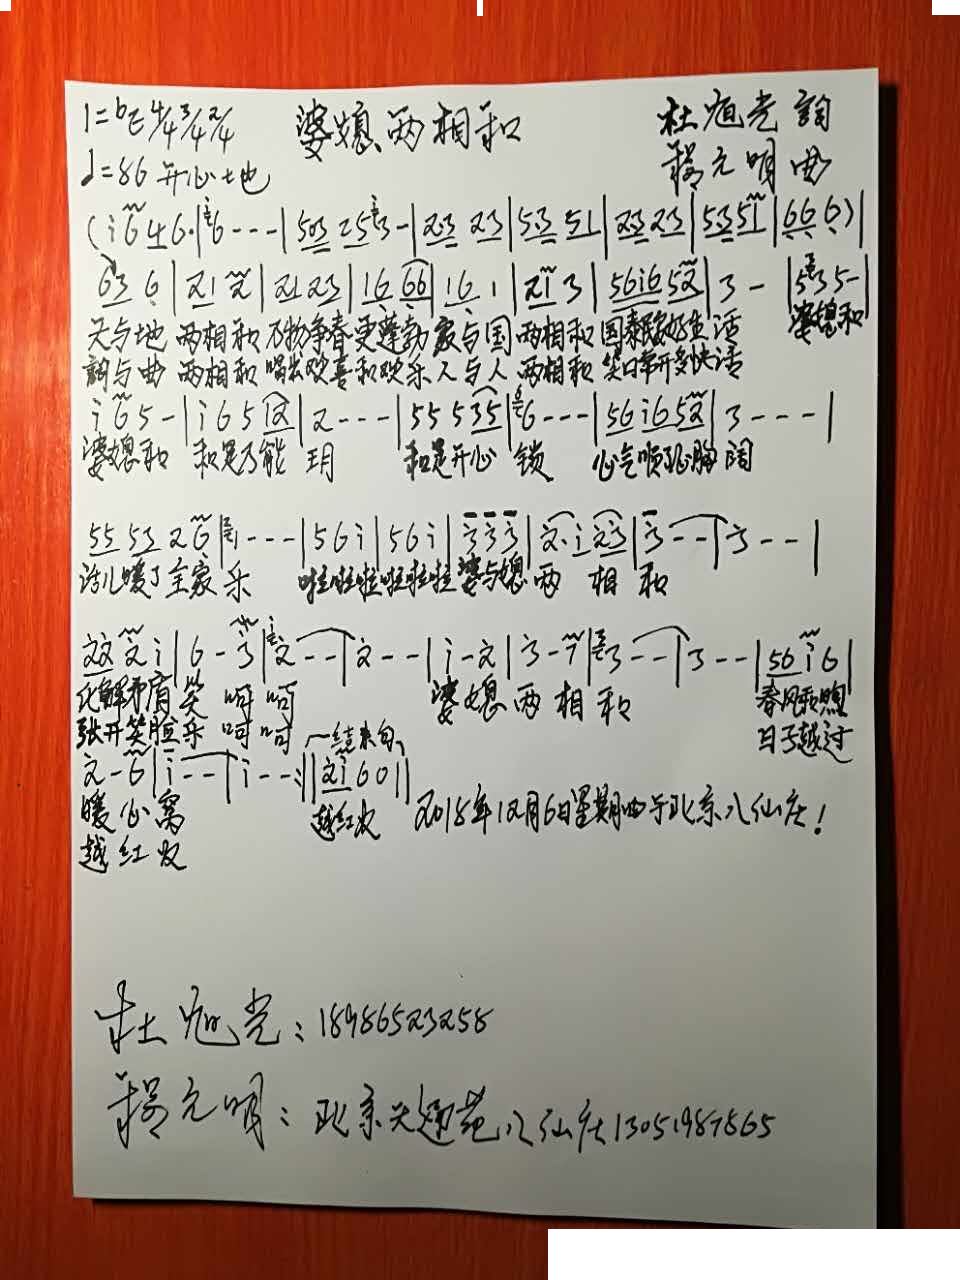 1=bE 4/4 3/4 2/4 婆媳两相和 杜恒光 詞
♩=86 开心地 程元明 曲
(i 6 4 6·|6---|503 253-|23 23|53 51|23 23|53 51|66 6)|
63 6|21 2|21 23|16 66|16 1|21 3|5616 52|3-|535-|
天与地 两相和 万物争春更蓬勃 家与国 两相和 国泰民安好生活 婆媳和
詞与曲 两相和 唱出欢喜和欢乐 人与人 两相和 笑口常开多快活
i 6 5-|i 6 5 12|2---|55 5 35|6---|56 i6 52|3---|
婆媳和 和是万能 玥 和是开心 锁 心气顺延胸 阔
55 53 2 6|1---|5 6 i|5 6 i|3 3 3|2·i 23|3--|3--|
话儿暖了全家 乐 啦啦啦啦啦啦 婆与媳 两 相 和
22 2 i|6-3|2--|2--|i-2|3-7|3--|3--|56 i 6|
化解矛盾 笑 呵 呵 婆 媳 两 相 和 春风和煦
张开笑脸 乐 呵 呵 结束句 日子越过
2-6|i--|i--:||2i 6 0||
暖 心 窝 越红火 2018年12月6日星期四于北京八仙庄!
越 红 火
杜恒光: 18986523258
程元明: 北京天通苑八仙庄13051987565